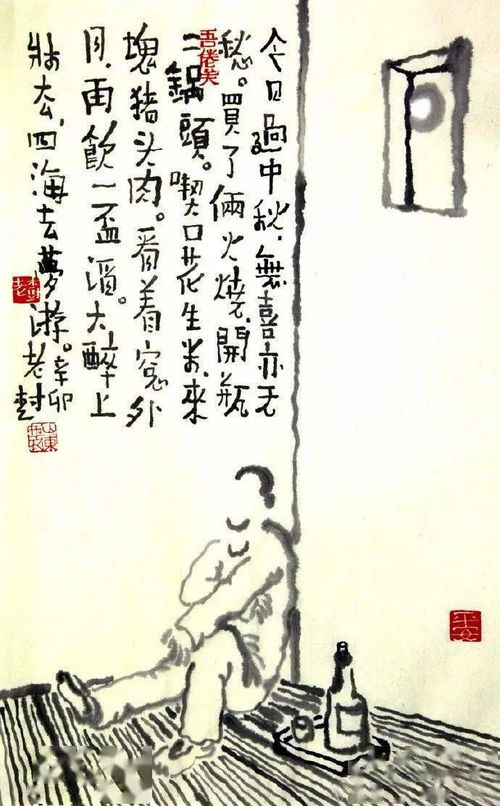 今日過中秋,無喜亦无
愁。買了倆火燒,開瓶
二鍋頭。喫口花生米,來
塊猪头肉。看着窗外
月,再飲一盃酒。大醉上
牀去,四海去夢游。辛卯老